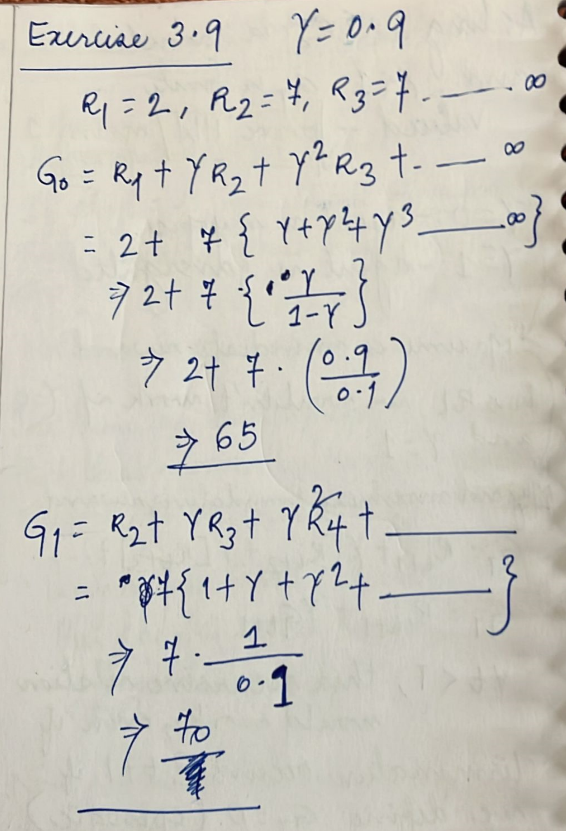 Exercise 3.9 γ = 0.9
R₁ = 2, R₂ = 7, R₃ = 7. —— ∞
G₀ = R₁ + γR₂ + γ²R₃ + . —— ∞
= 2 + 7 { γ + γ² + γ³ —— ∞}
⇒ 2 + 7 { γ/(1-γ) }
⇒ 2 + 7 · (0.9/0.1)
⇒ 65
G₁ = R₂ + γR₃ + γ²R₄ + ——
= 7{ 1 + γ + γ² + —— }
⇒ 7 · 1/0.1
⇒ 70